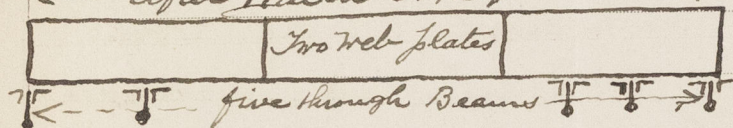 Two web plates
five through Beams